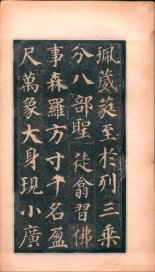 珮葳蕤至於列三乗
分八部聖徒翕習佛
事森羅方寸千名盈
尺萬象大身現小廣